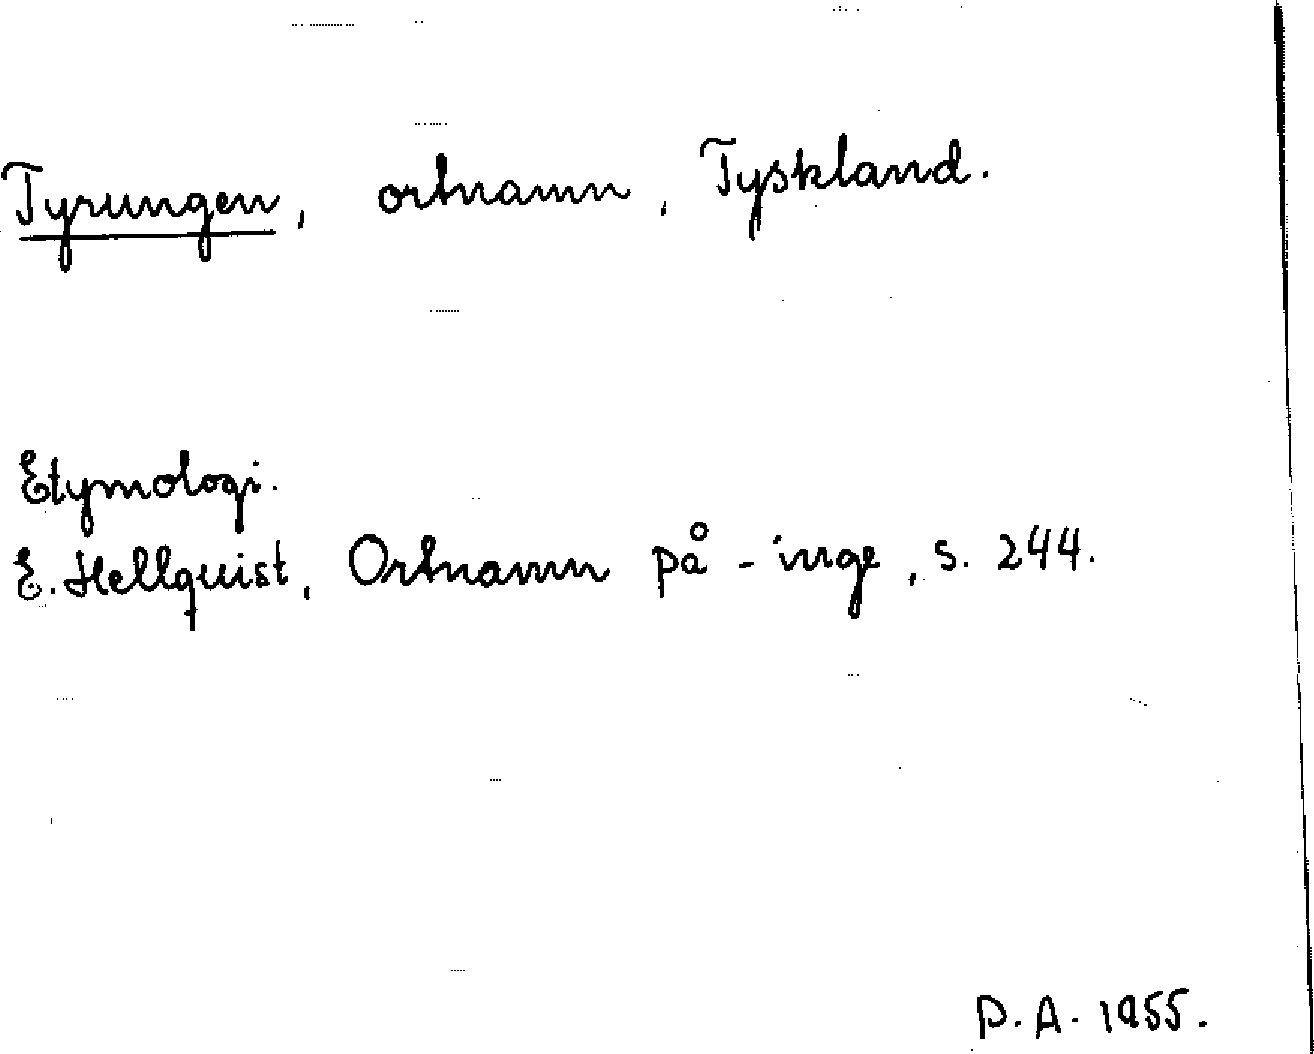 Tyrungen, ortnamn, Tyskland.
Etymologi.
E. Hellquist, Ortnamn på -inge, s. 244.
P.A. 1955.